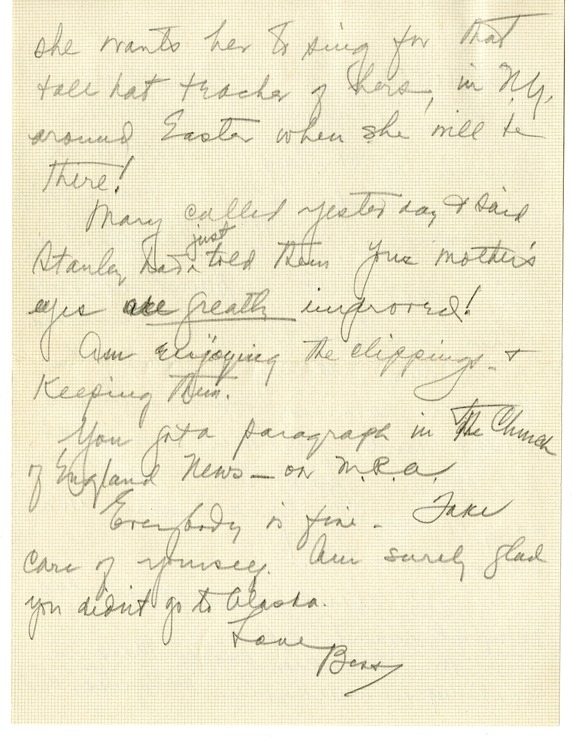 she wants her to sing for that
tall hat teacher of hers, in N.Y.
around Easter when she will be
there!
Mary called yesterday & said
just
Stanley had told them your mother's
eyes are greatly improved!
Am enjoying the clippings - &
Keeping them.
You got a paragraph in The Church
of England News - on M.R.A.
Everybody is fine - Take
care of yourself. Am surely glad
you didn't go to Alaska.
Love
Bess